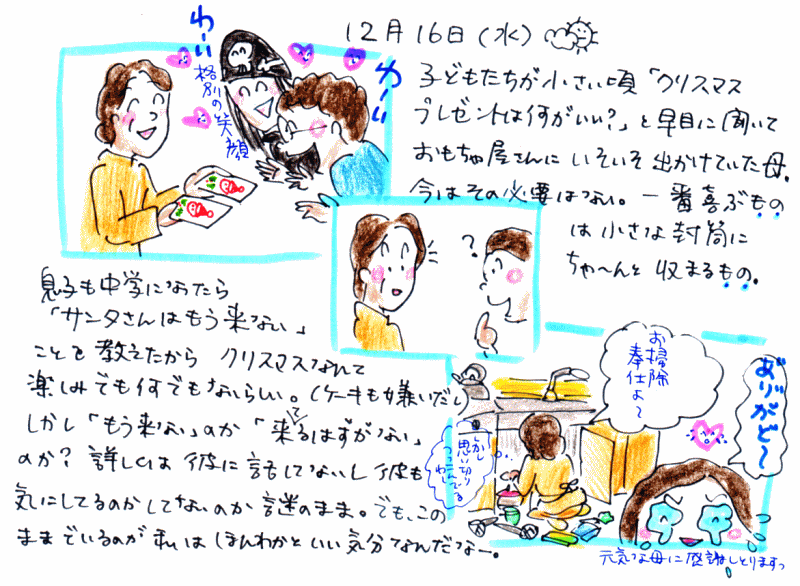 12月16日(水)
わーい
わーい
格別の笑顔
子どもたちが小さい頃「クリスマス
プレゼントは何がいい?」と早目に聞いて
おもちゃ屋さんにいそいそ出かけていた母。
今はその必要はない。一番喜ぶもの
は小さな封筒に
ちゃ〜んと収まるもの。
?
息子も中学になったら
「サンタさんはもう来ない」
ことを教えたから クリスマスなんて
楽しみでも何でもないらしい。(ケーキも嫌いだし)
しかし「もう来ない」のか「来るはずがない」
って
のか?詳しくは彼に話してないし彼も
気にしてるのかしてないのか謎のまま。でも、この
ままでいるのが私はほんわかといい気分なんだなー。
お掃除
奉仕よ〜
ありがど〜
しかし
思い切り
つっこんでるわし
元気な母に感謝しとりますっ